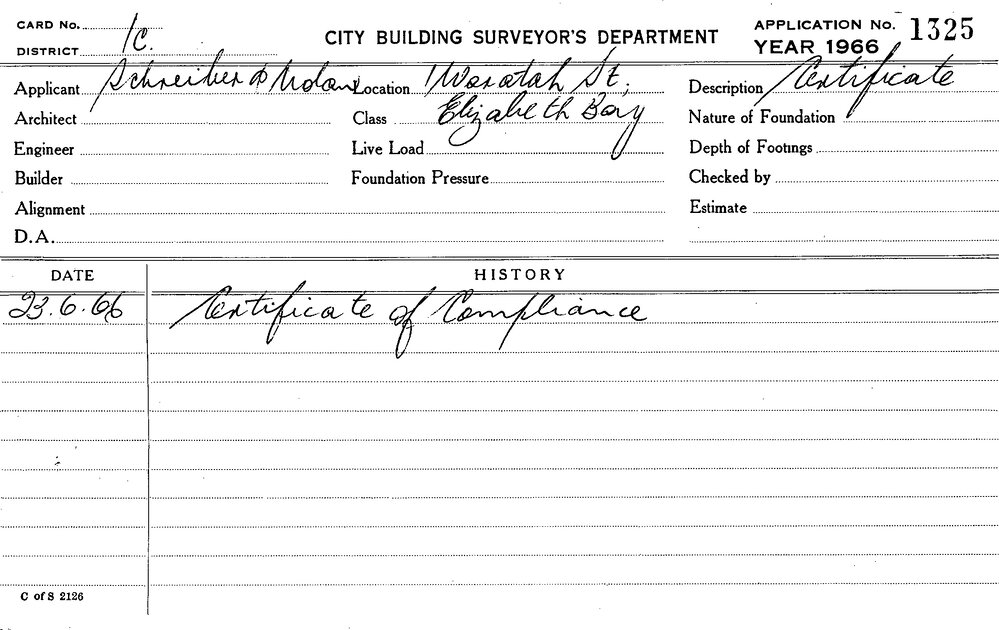 CARD No.
DISTRICT 1C.
CITY BUILDING SURVEYOR'S DEPARTMENT
APPLICATION No. 1325
YEAR 1966
Applicant Schreiber & Nolan
Location 1 Waratah St,
Description Certificate
Architect
Class Elizabeth Bay
Nature of Foundation
Engineer
Live Load
Depth of Footings
Builder
Foundation Pressure
Checked by
Alignment
Estimate
D.A.
DATE HISTORY
23.6.66 Certificate of Compliance
C of S 2126